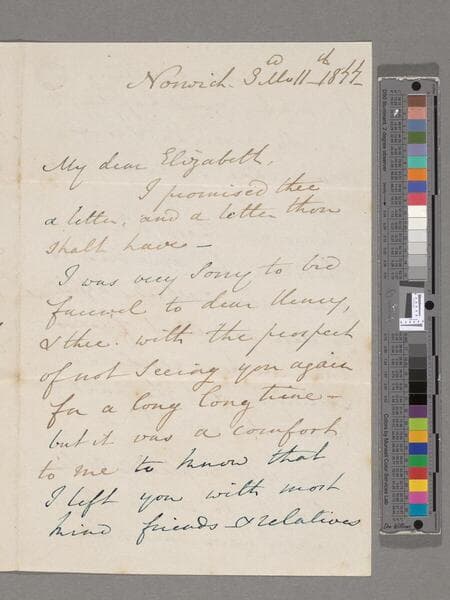 Norwich. 3d Mo 11th 1844
My dear Elizabeth,
I promised thee
a letter, and a letter thou
shalt have -
I was very sorry to bid
farewel to dear Henry,
& thee. with the prospect
of not seeing you again
for a long long time -
but it was a comfort
to me to know that
I left you with most
kind friends & relatives